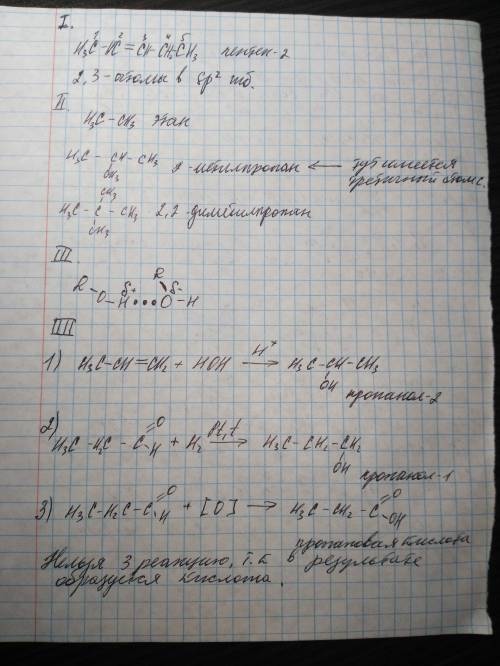 I.
1 2 3 4 5
H3C-HC=CH-CH2-CH3 пентен-2
2,3-атомы в sp² гиб.
II
H3C-CH3 этан
H3C-CH-CH3 2-метилпропан ← тут имеется
CH3 третичный атом C.
CH3
H3C-C-CH3 2,2-диметилпропан
CH3
III
R R
O-H δ+ ••• O δ- -H
IIII
1) H3C-CH=CH2 + HOH H⁺ → H3C-CH-CH3
OH
пропанол-2
2) H3C-H2C-C O H + H2 Pt, t → H3C-CH2-CH2
OH
пропанол-1
3) H3C-H2C-C O H + [O] → H3C-CH2-C O OH
пропановая кислота
Нельзя 3 реакцию, т.к в результате
образуется кислота.